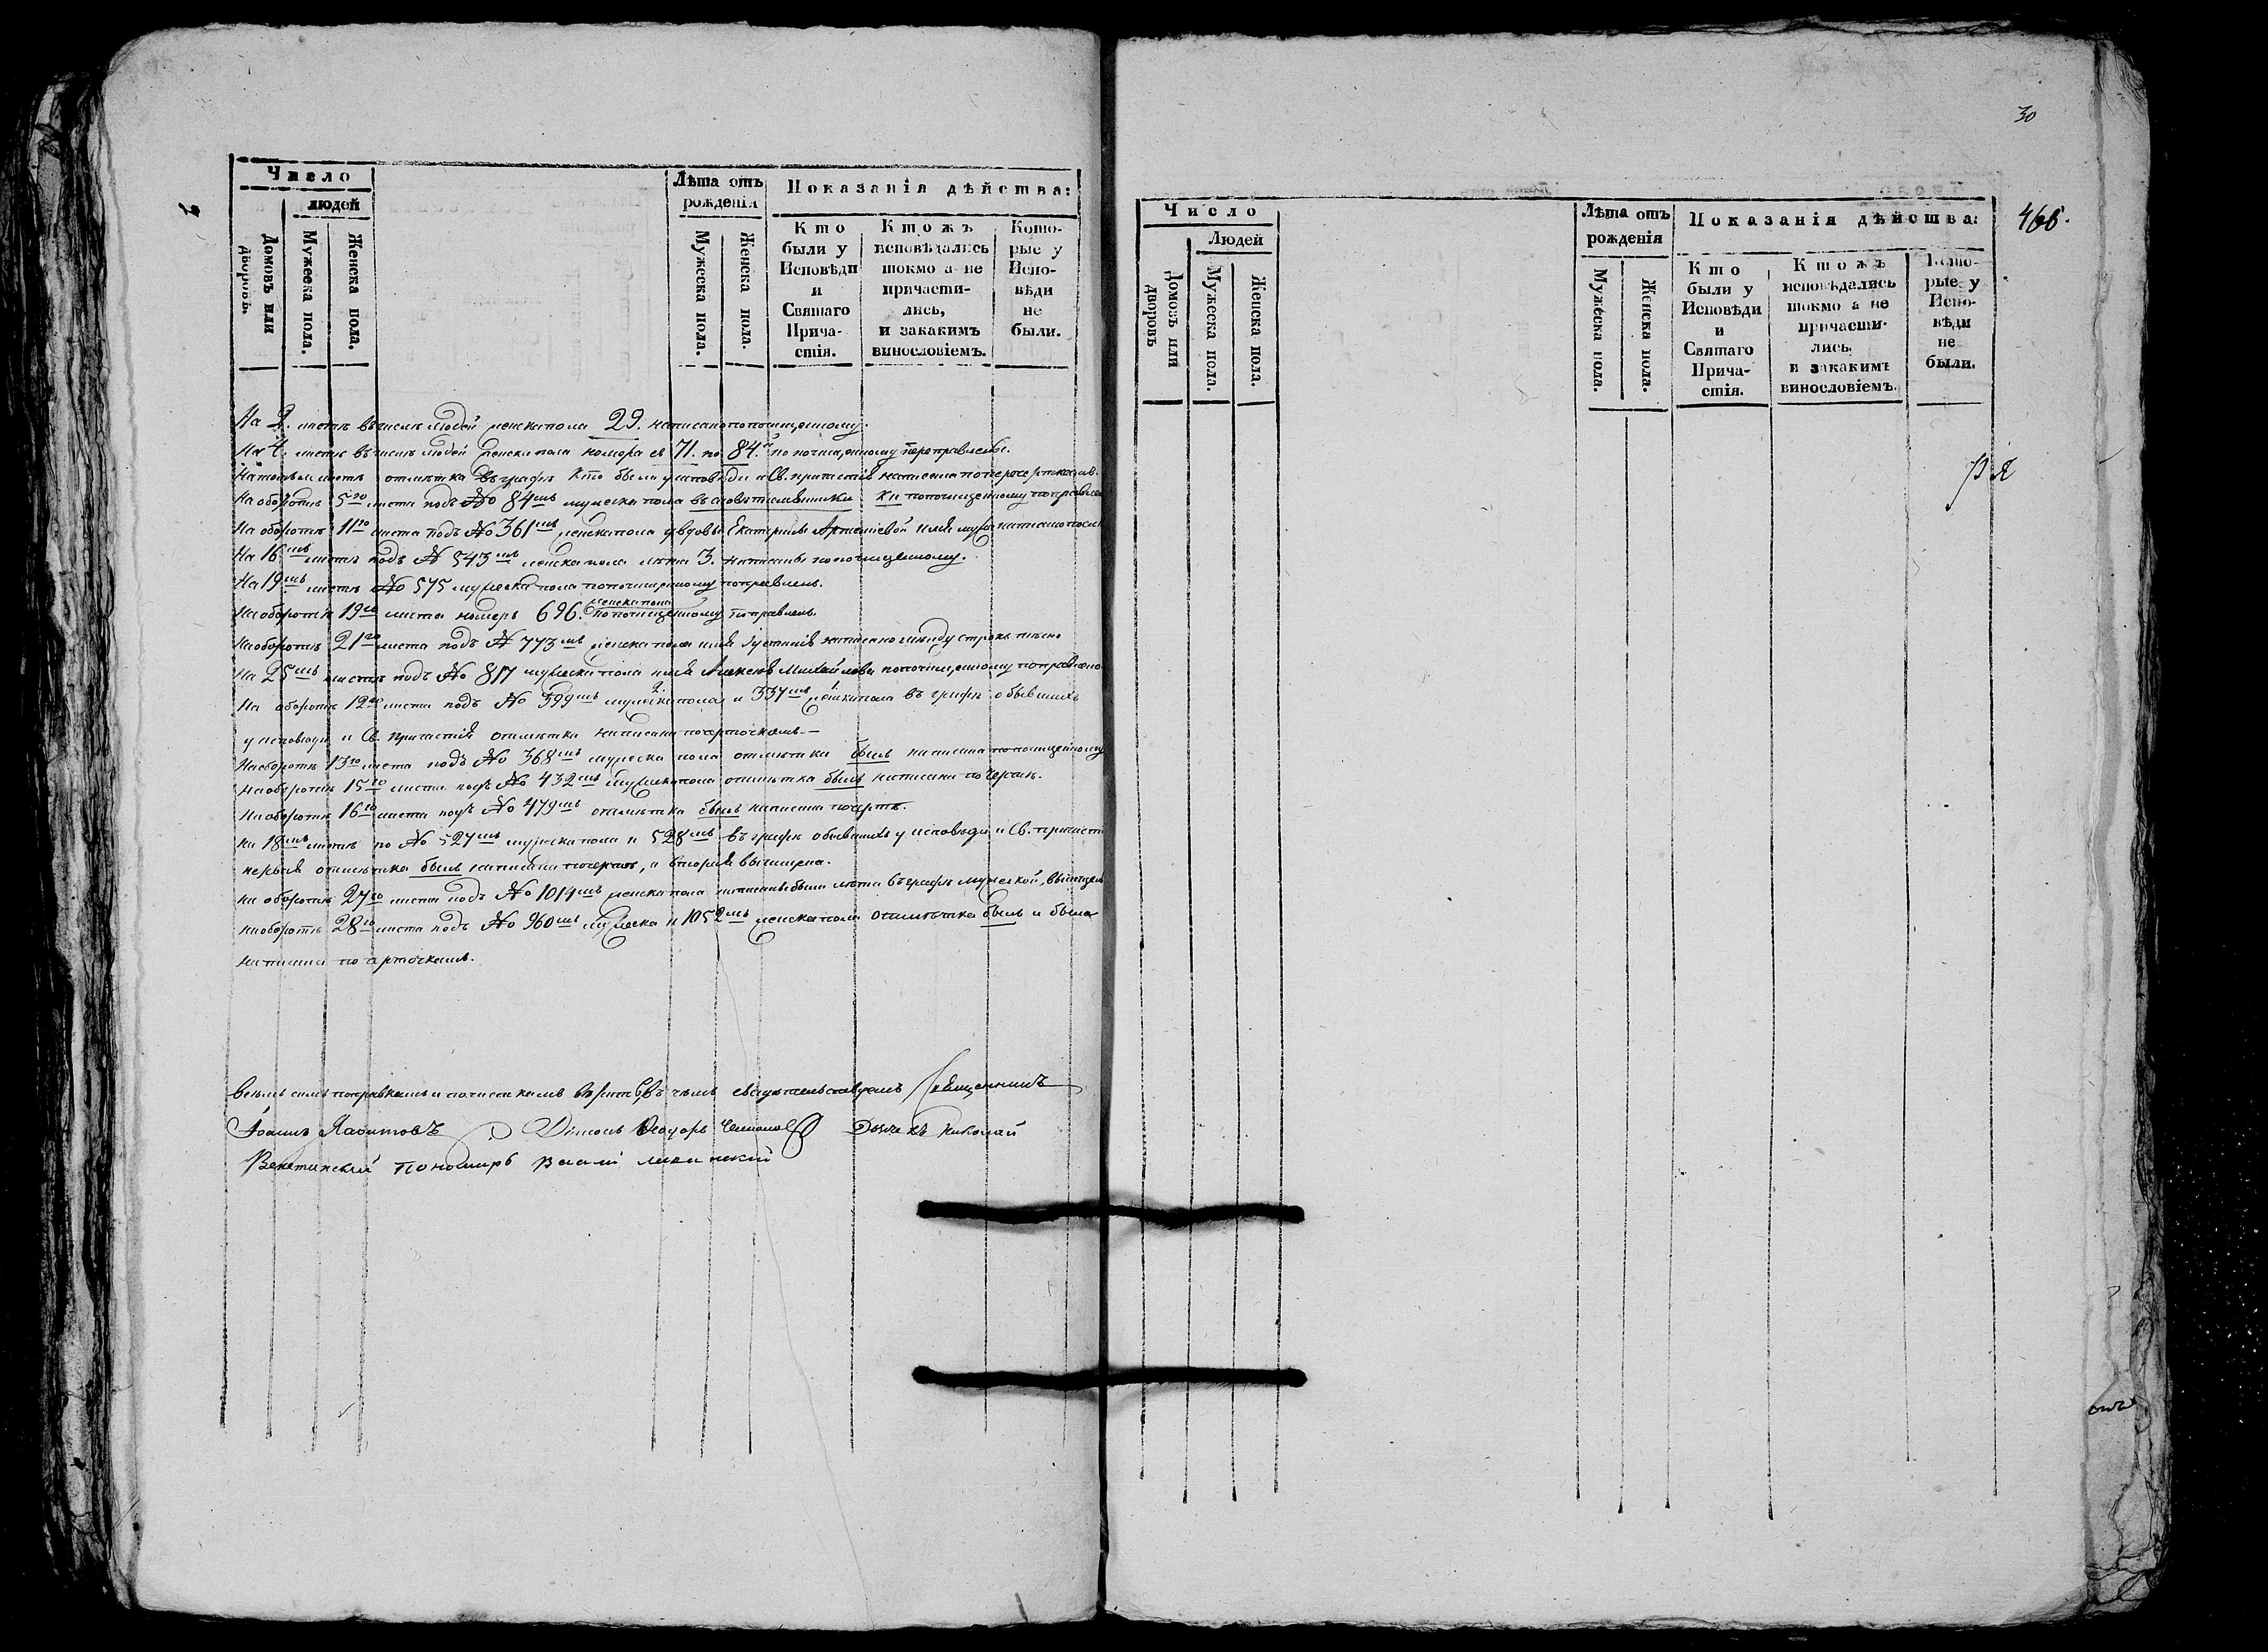 Число
людей
Домовъ или дворовъ.
Мужеска пола.
Женска пола.
Лѣта отъ рожденія
Мужеска пола.
Женска пола.
Показанія дѣйства:
Кто
были у
Исповѣди
и
Святаго
Прича-
стія.
Ктожъ
исповѣдались
токмо а не
причасти-
лись,
и закакимъ
винословіемъ.
Кото-
рые у
Испо-
вѣди
не
были.
На 2. листѣ въ числѣ людей женска пола 29. написано по почищенному.
На 4. листѣ въ числѣ людей женска пола номера съ 71. по 84.й по почищенному переправлены.
На томъ листѣ отмѣтка въ графѣ кто были у исповѣди и Св. причастія написана по
На оборотѣ 5го листа подъ № 84мъ мужеска пола въ словѣ ки по почищенному
На оборотѣ 11го листа подъ № 361мъ женска пола у вдовы Екатерины Артемьевой имя мужа написано
На 16мъ листѣ подъ № 543мъ женска пола лѣта 3. написаны по почищенному.
На 19мъ листѣ № 575 мужеска пола по почищенному поправленъ.
На оборотѣ 19го листа номеръ 696. женска пола по почищенному поправленъ.
На оборотѣ 21го листа подъ № 773мъ женска пола имя написано между строкъ
На 25мъ листѣ подъ № 817 мужеска пола имя Алексѣя Михайлова по почищенному поправлено
На оборотѣ 12го листа подъ № 399мъ мужеска пола и 337мъ женска пола въ графѣ о бывшихъ
у исповѣди и Св. причастія отмѣтки написаны по черточкамъ.—
На оборотѣ 13го листа подъ № 368мъ мужеска пола отмѣтка былъ написана по почищенному
На оборотѣ 15го листа подъ № 432мъ мужеска пола отмѣтка былъ написана по чертѣ.
На оборотѣ 16го листа подъ № 479мъ отмѣтка былъ написана по чертѣ.
На 18мъ листѣ по № 527мъ мужеска пола и 528мъ въ графѣ о бывшихъ у исповѣди и Св. причастія
первая отмѣтка былъ написана по чертѣ, а вторая вычищена.
На оборотѣ 27го листа подъ № 1014мъ женска пола написаны были лѣта въ графѣ мужеской,
На оборотѣ 28го листа подъ № 960мъ мужеска и 1052мъ женска пола отмѣтка былъ и была
написаны по черточкамъ.
Всѣмъ симъ поправкамъ и почисткамъ въ чемъ свидѣтельствуемъ Священникъ
Іоаннъ Діаконъ Ѳеодоръ Дьячекъ Николай
Пономарь
30
466.
Число
Людей
Домовъ или дворовъ
Мужеска пола.
Женска пола.
Лѣта отъ рожденія
Мужеска пола.
Женска пола.
Показанія дѣйства:
Кто
были у
Исповѣди
и
Святаго
Прича-
стія.
Ктожъ
исповѣдались
токмо а не
причасти-
лись,
и закакимъ
винословіемъ.
Кото-
рые у
Испо-
вѣди
не
были.